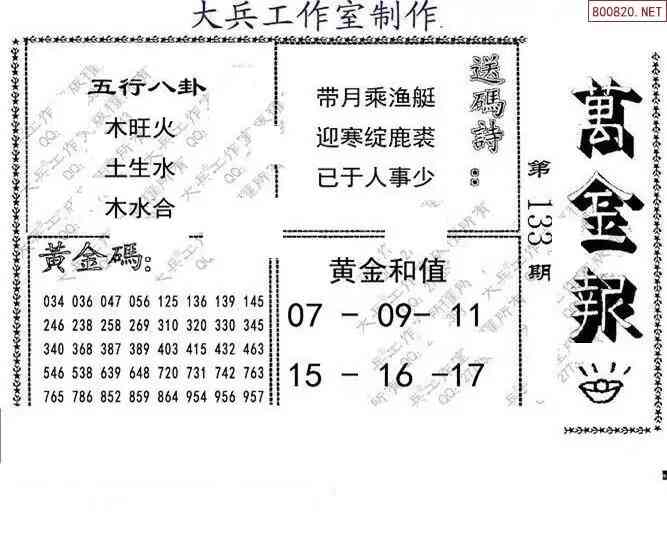 大兵工作室制作
800820.NET
五行八卦
木旺火
土生水
木水合
送碼詩：
带月乘渔艇
迎寒绽鹿裘
已于人事少
萬金報
第133期
黃金碼：
034 036 047 056 125 136 139 145
246 238 258 269 310 320 330 345
340 368 387 389 403 415 432 463
546 538 639 648 720 731 742 763
765 786 852 859 864 954 956 957
黄金和值
07 - 09- 11
15 - 16 -17